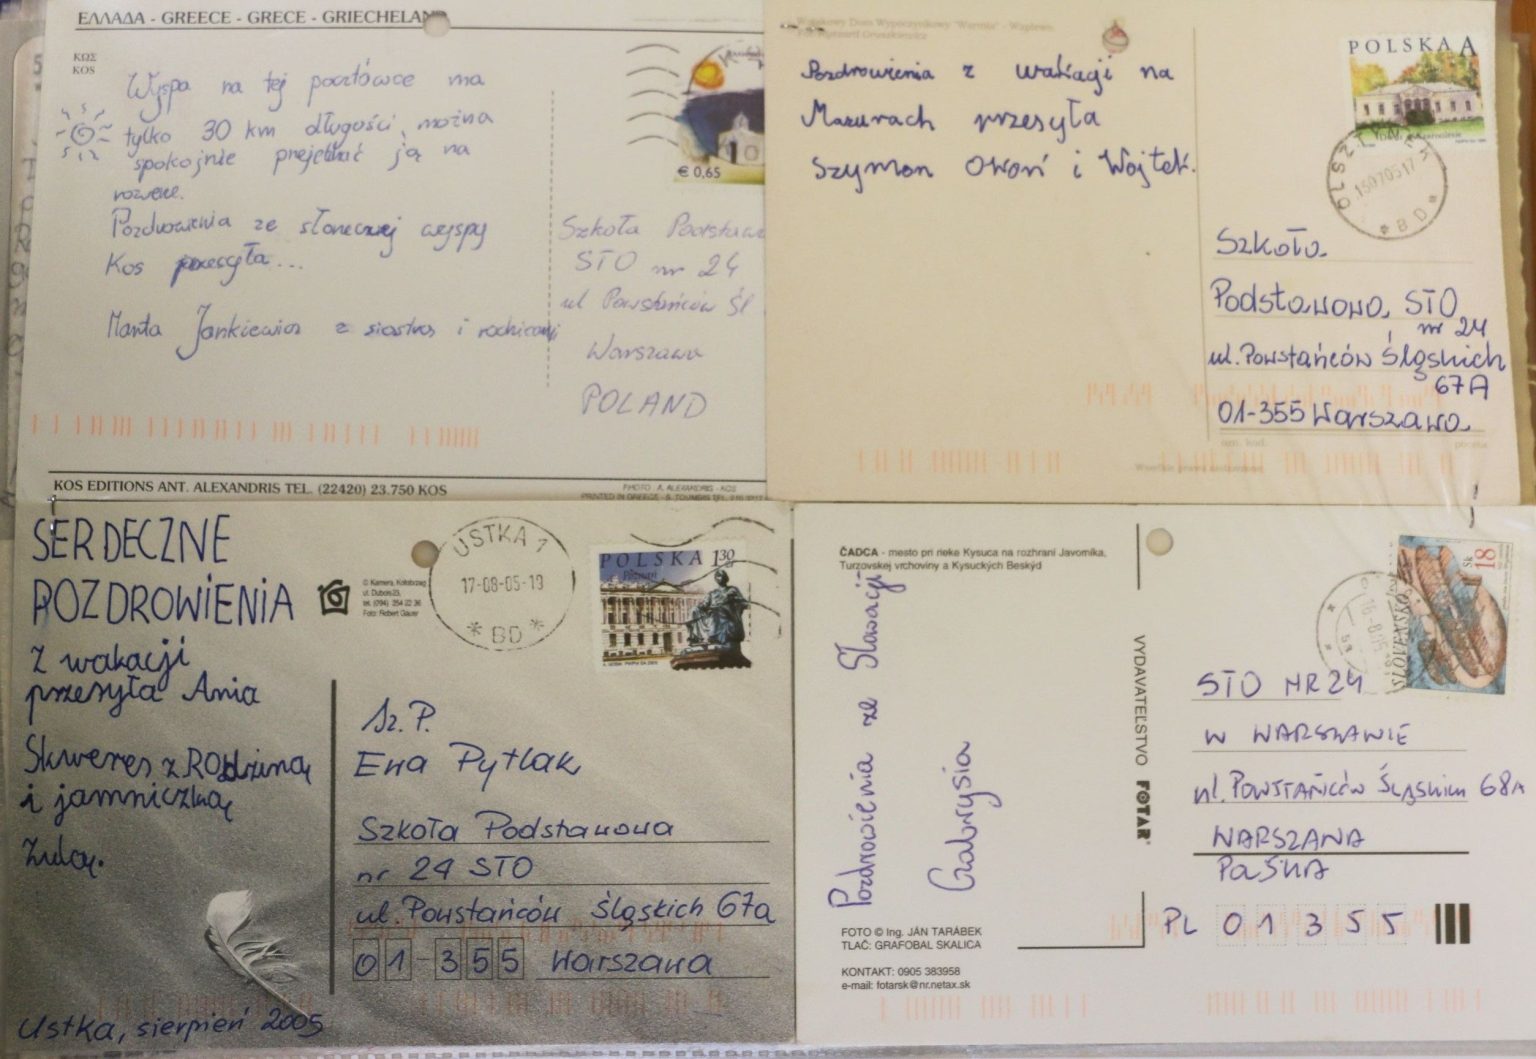 ΕΛΛΑΔΑ - GREECE - GRECE - GRIECHELAND
ΚΩΣ
KOS
Wyspa na tej pocztówce ma
tylko 30 km długości, można
spokojnie przejechać ją na
rowerze.
Pozdrowienia ze słonecznej wyspy
Kos przesyła...
Marta Jankiewicz z siostrą i rodzicami
€ 0,65
Szkoła Podstawowa
STO nr 24
ul Powstańców Śl
Warszawa
POLAND
KOS EDITIONS ANT. ALEXANDRIS TEL. (22420) 23.750 KOS
PHOTO - A. ALEXANDRIS - KOS
PRINTED IN GREECE - S. TOUMBIS
Pozdrowienia z wakacji na
Mazurach przesyła
Szymon Owoń i Wojtek.
POLSKA A
OLSZTYNEK
150705 17
* B D *
Szkoła
Podstawowa STO
nr 24
ul. Powstańców Śląskich
67A
01-355 Warszawa
SERDECZNE
POZDROWIENIA
z wakacji
przesyła Ania
Skweres z Rodziną
i jamniczką
Zulą.
Ustka, sierpień 2005
© Kamera, Kołobrzeg
ul. Dubois 23,
tel. (094) 354 22 36
Foto: Robert Gauer
USTKA 1
17-08-05-19
* BD *
POLSKA 1 30
Poznań
Sz. P.
Ewa Pytlak
Szkoła Podstawowa
nr 24 STO
ul. Powstańców Śląskich 67a
01-355 Warszawa
ČADCA - mesto pri rieke Kysuca na rozhraní Javorníka,
Turzovskej vrchoviny a Kysuckých Beskýd
Pozdrowienia ze Słowacji
Gabrysia
FOTO © Ing. JÁN TARÁBEK
TLAČ: GRAFOBAL SKALICA
KONTAKT: 0905 383958
e-mail: fotarsk@nr.netax.sk
VYDAVATEĽSTVO FOTAR
SLOVENSKO
18 Sk
STO NR 24
W WARSZAWIE
ul. POWSTAŃCÓW ŚLĄSKICH 68A
WARSZAWA
POLSKA
PL 01355